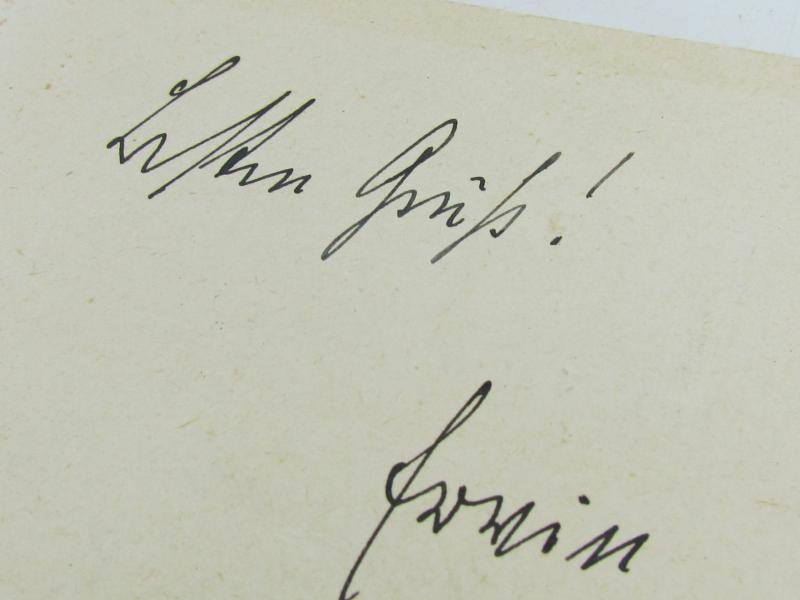 Besten Gruß!
Erwin